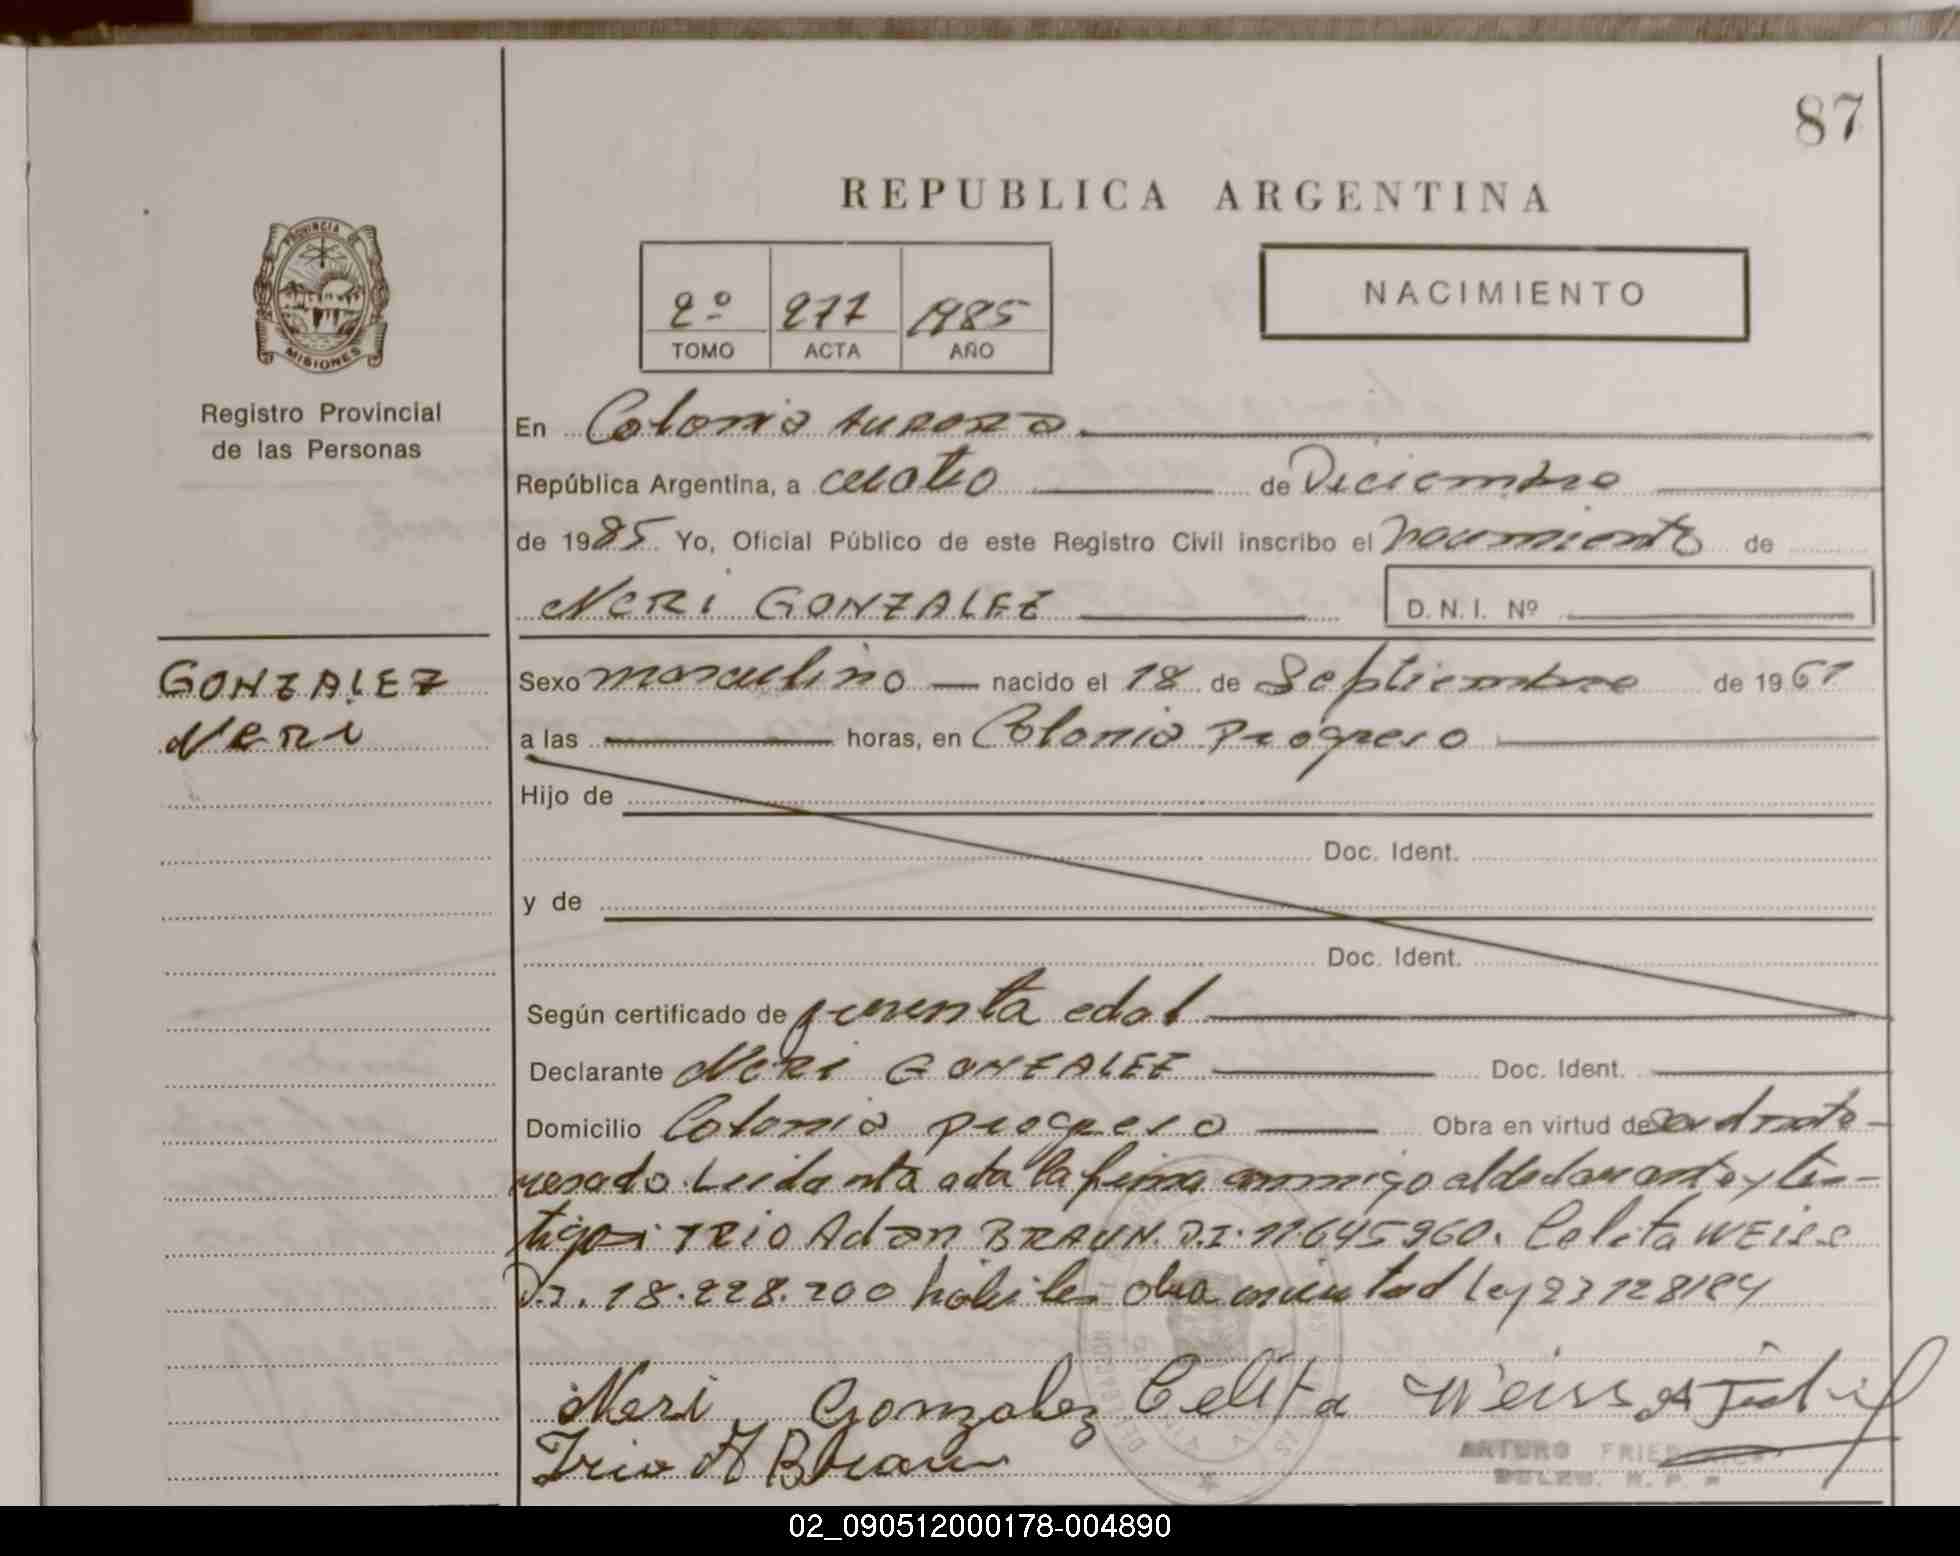 87
REPUBLICA ARGENTINA
PROVINCIA DE
MISIONES
2º 277 1985
TOMO ACTA AÑO
NACIMIENTO
Registro Provincial
de las Personas
En Colonia Aurora
República Argentina, a cuatro de Diciembre
de 1985 Yo, Oficial Público de este Registro Civil inscribo el nacimiento de
NERI GONZALEZ D. N. I. Nº
GONZALEZ
NERI
Sexo masculino nacido el 18 de Septiembre de 1961
a las horas, en Colonia Progreso
Hijo de
Doc. Ident.
y de
Doc. Ident.
Según certificado de presunta edad
Declarante NERI GONZALEZ Doc. Ident.
Domicilio Colonia Progreso Obra en virtud de
Leida esta acta la firma conmigo el declarante y tes-
tigos: IRIO Adan BRAUN. D.I. 11.645960. Celita WEISS
D.I. 18.228.200 hábiles obra en virtud ley 23128/84
Neri Gonzalez Celita Weiss
Irio A Braun
ARTURO
02_090512000178-004890